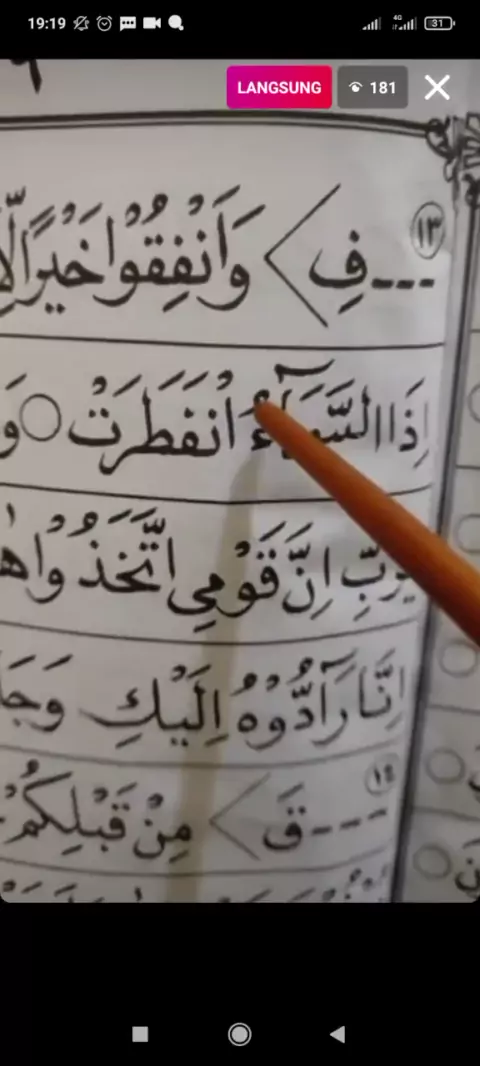 19:19 4G 31
LANGSUNG 181
١٣
---فِ > وَاَنْفِقُوْا خَيْرًا
اِذَا السَّمَآءُ انْفَطَرَتْ ○ وَ
يٰرَبِّ اِنَّ قَوْمِى اتَّخَذُوْا
اِنَّا رَآدُّوْهُ اِلَيْكِ وَجَا
١٤
---قَ > مِنْ قَبْلِكُمْ